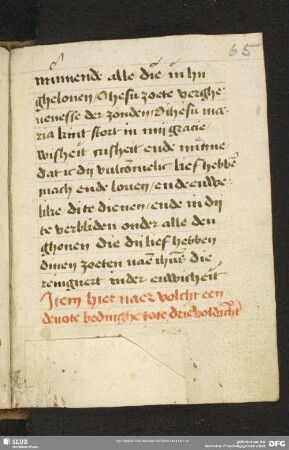 65
minnende alle die in hu
ghelouen / O ihesu zoete verghe
uenesse der zonden / O ihesu ma
ria kint stort in mij gracie /
wisheit cusheit ende minne
dat ic dij volcomelic lief hebbē
mach ende louen / ende euwe
like di te dienen / ende in dij
te verbliden onder alle den
ghonen die dij lief hebben
dinen zoeten naē ihūs die
reingniert in der euwicheit
Item hier naer volcht een
deuote bedinghe tote
SLUB
DFG